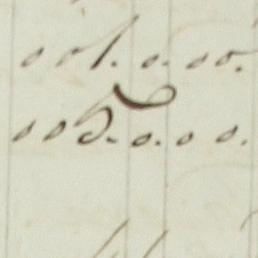 001. 0. 00.
005. 0. 0 0.